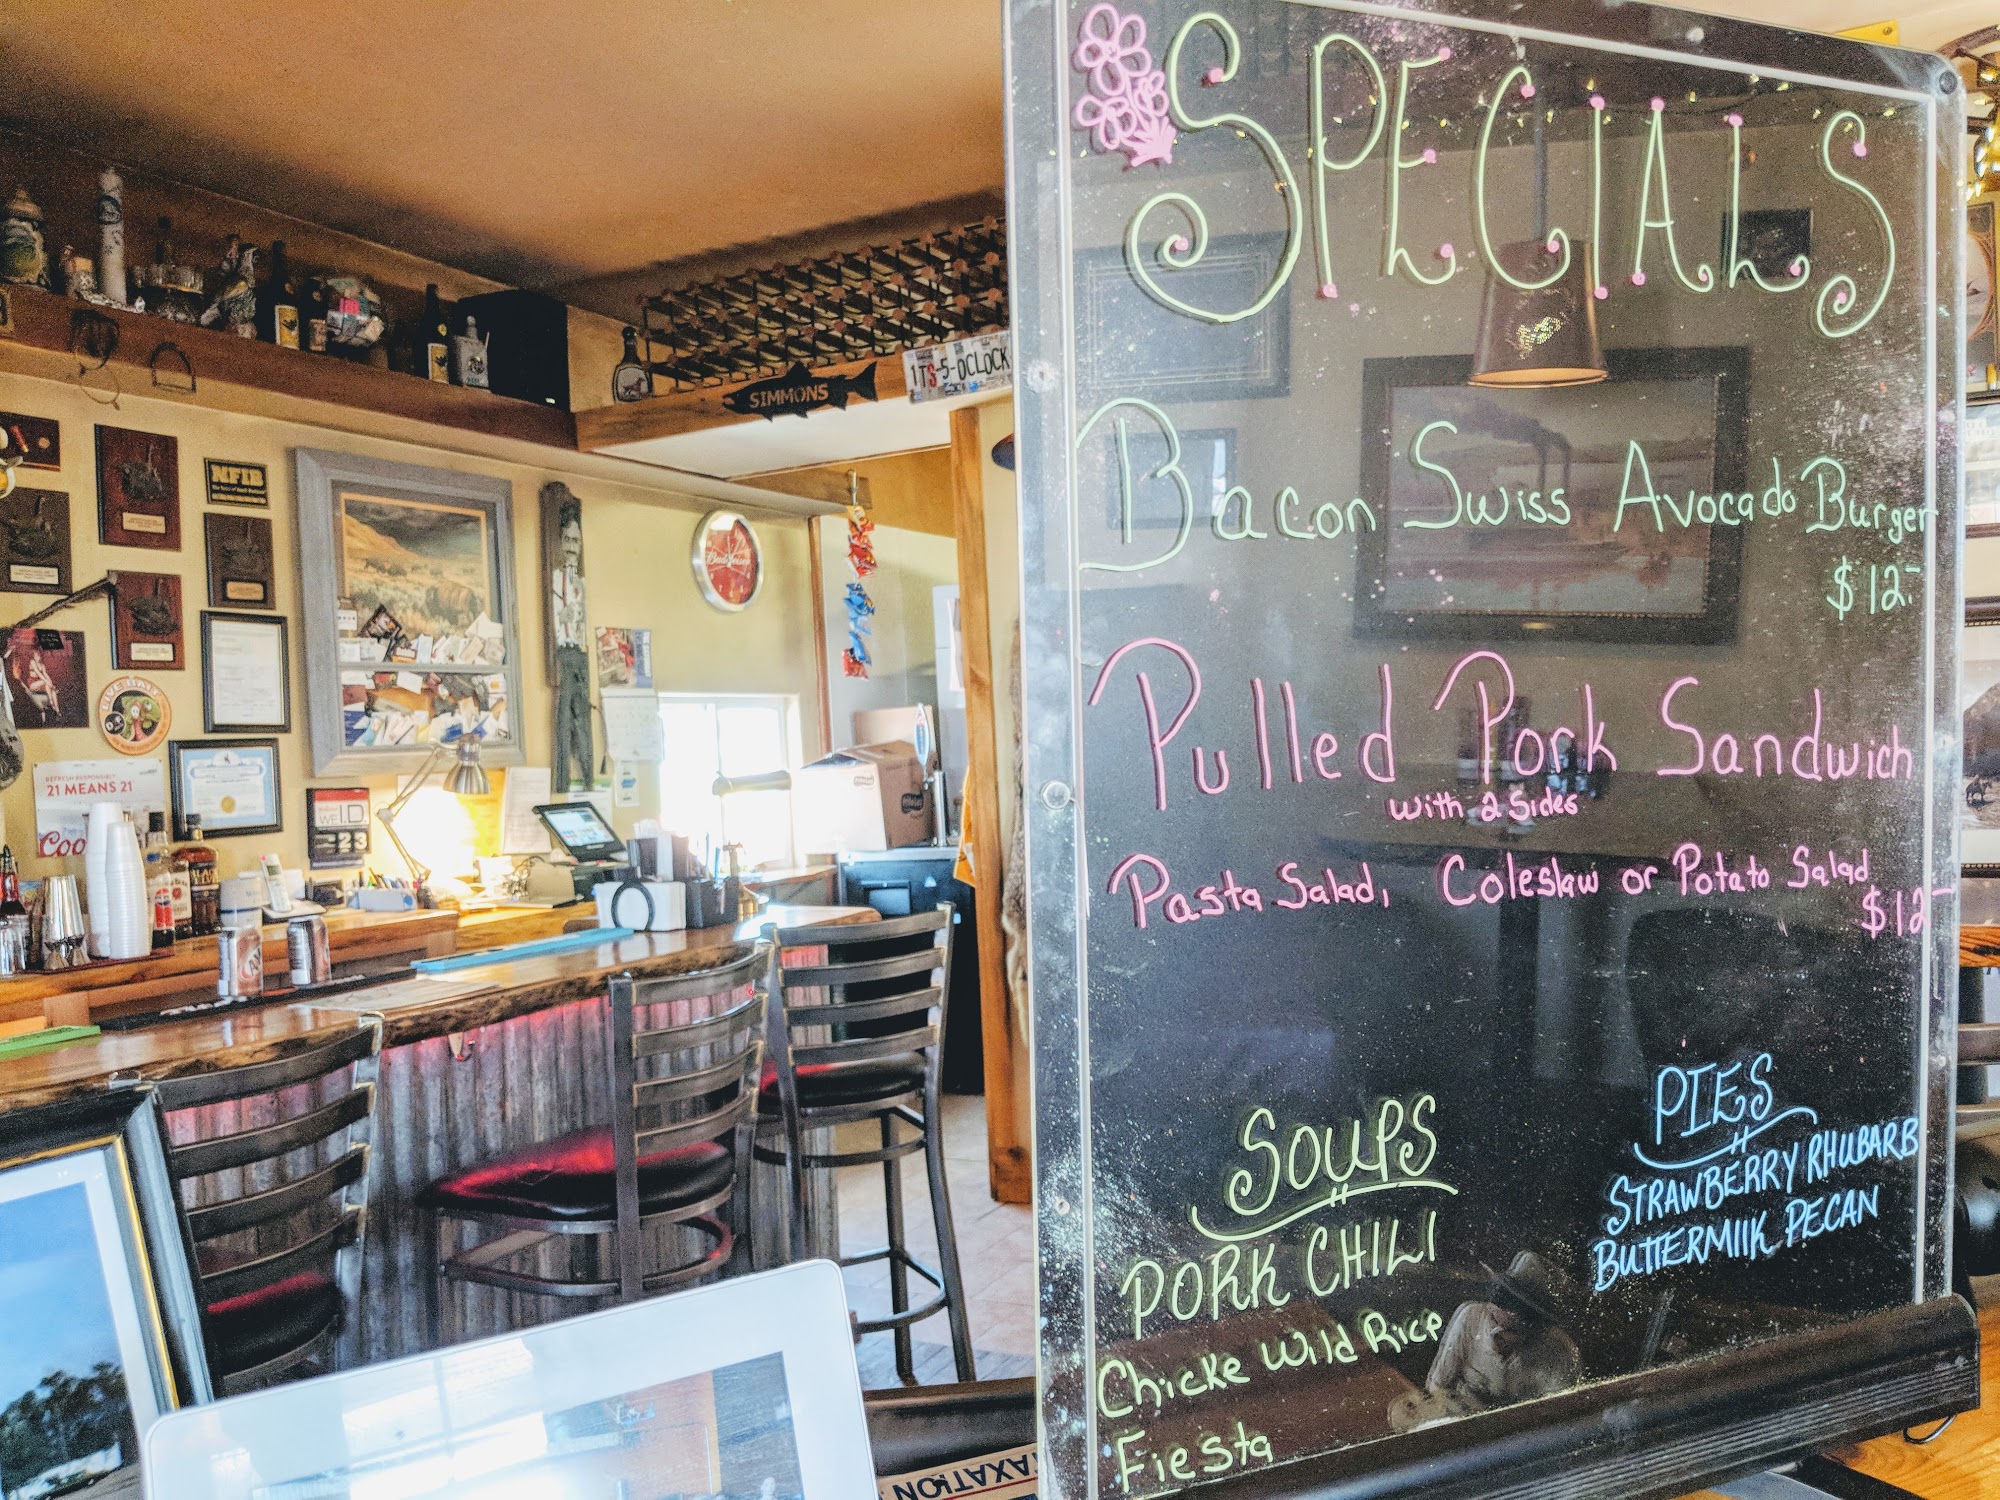 SPECIALS
Bacon Swiss Avocado Burger
$12.-
Pulled Pork Sandwich
with 2 Sides
Pasta Salad, Coleslaw or Potato Salad
$12-
SOUPS
PORK CHILI
Chicke Wild Rice
Fiesta
PIES
STRAWBERRY RHUBARB
BUTTERMIlK PECAN
SIMMONS
ITS-5-OCLOCK
NFIB
Budweiser
21 MEANS 21
Coo
WE I.D.
23
A&W
TAXATION